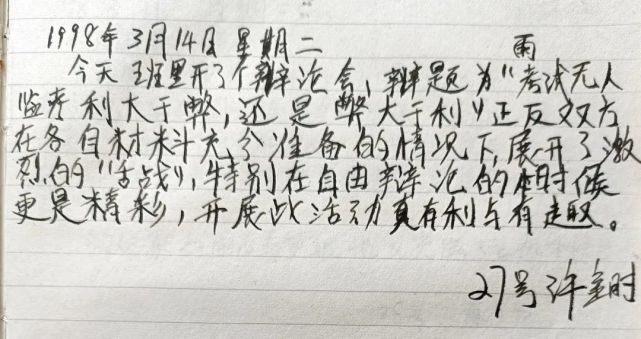 1998年3月14日 星期二 雨
今天班里开了个辩论会,辩题为“考试无人
监考利大于弊,还是弊大于利”正反双方
在各自材料充分准备的情况下,展开了激
烈的“舌战”,特别在自由辩论的时候
更是精彩,开展战活动真有利与有趣。
27号 许金时